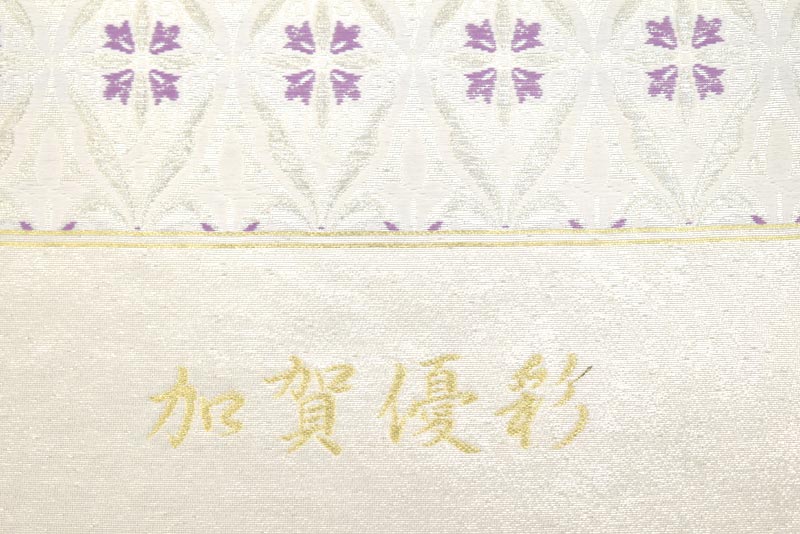 加賀優彩